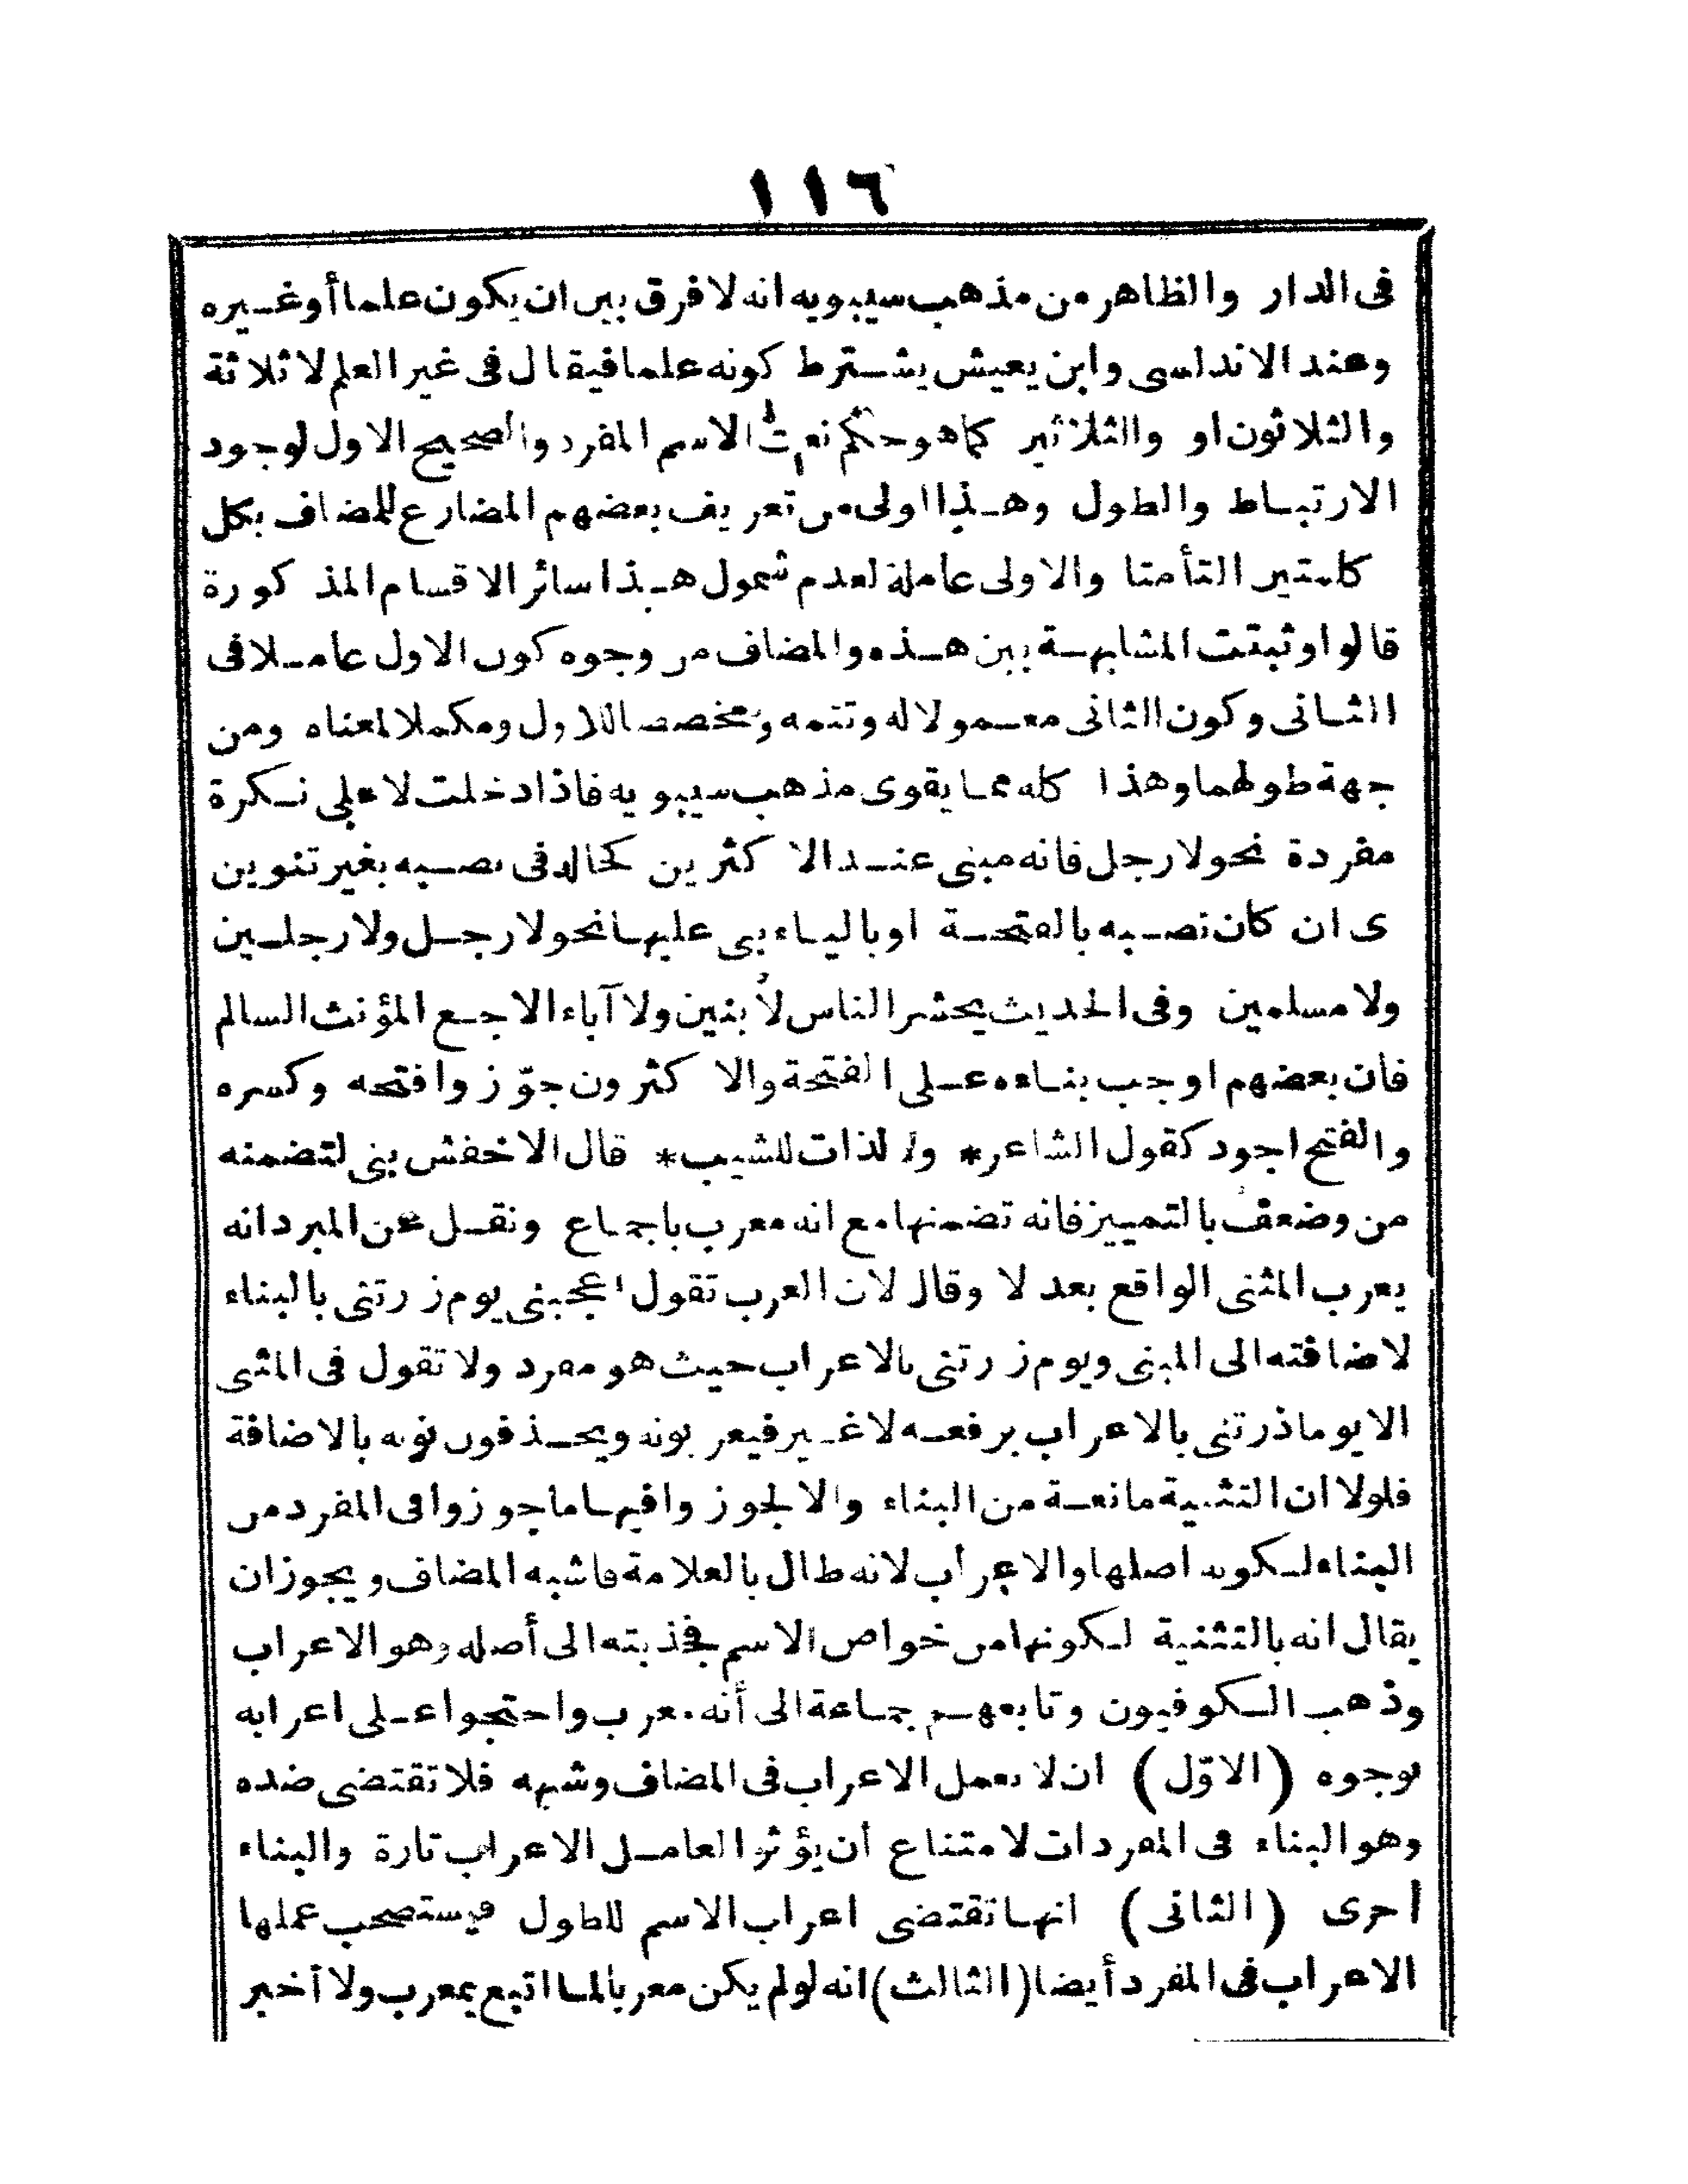 ١١٦
فى الدار والظاهر من مذهب سيبويه انه لا فرق بين ان يكون علما أو غيره
وعند الاندلسى وابن يعيش يشترط كونه علما فيقال فى غير العلم لا ثلاثة
والثلاثون او والثلاثين كما هو حكم نعت الاسم المفرد والصحيح الاول لوجود
الارتباط والطول وهذا اولى من تعريف بعضهم المضارع للمضاف بكل
كلمتين التأمتا والاولى عاملة لعدم شمول هذا سائر الاقسام المذكورة
قالوا وثبتت المشابهة بين هذه والمضاف من وجوه كون الاول عاملا فى
الثانى وكون الثانى معمولا له وتتمه ومخصصا للاول ومكملا لمعناه ومن
جهة طولهما وهذا كله مما يقوى مذهب سيبويه فاذا دخلت لا على نكرة
مفردة نحو لا رجل فانه مبنى عند الاكثرين كحاله فى نصبه بغير تنوين
ى ان كان نصبه بالفتحة او بالياء بى عليها نحو لا رجل ولا رجلين
ولا مسلمين وفى الحديث يحشر الناس لا بنين ولا آباء الا جمع المؤنث السالم
فان بعضهم اوجب بناءه على الفتحة والاكثرون جوّزوا فتحه وكسره
والفتح اجود كقول الشاعر * ولا لذات للشيب * قال الاخفش بنى لتضمنه
من وضعف بالتمييز فانه تضمنها مع انه معرب باجماع ونقل عن المبرد انه
يعرب المثنى الواقع بعد لا وقال لان العرب تقول اعجبنى يوم زرتنى بالبناء
لاضافته الى المبنى ويوم زرتنى بالاعراب حيث هو مفرد ولا تقول فى المثنى
الا يوما ذرتنى بالاعراب برفعه لا غير فيعربونه ويحذفون نونه بالاضافة
فلولا ان التثنية مانعة من البناء والا لجوزوا فيها ما جوزوا فى المفرد من
البناء لكونه اصلها والاعراب لانه طال بالعلامة فاشبه المضاف ويجوز ان
يقال انه بالتثنية لكونها من خواص الاسم فجذبته الى أصله وهو الاعراب
وذهب الكوفيون وتابعهم جماعة الى أنه معرب واحتجوا على اعرابه
بوجوه (الاوّل) ان لا تعمل الاعراب فى المضاف وشبهه فلا تقتضى ضده
وهو البناء فى المفردات لامتناع أن يؤثر العامل الاعراب تارة والبناء
أخرى (الثانى) انها تقتضى اعراب الاسم للطول فيستصحب عملها
الاعراب فى المفرد أيضا (الثالث) انه لو لم يكن معربا لما اتبع بمعرب ولا أخبر